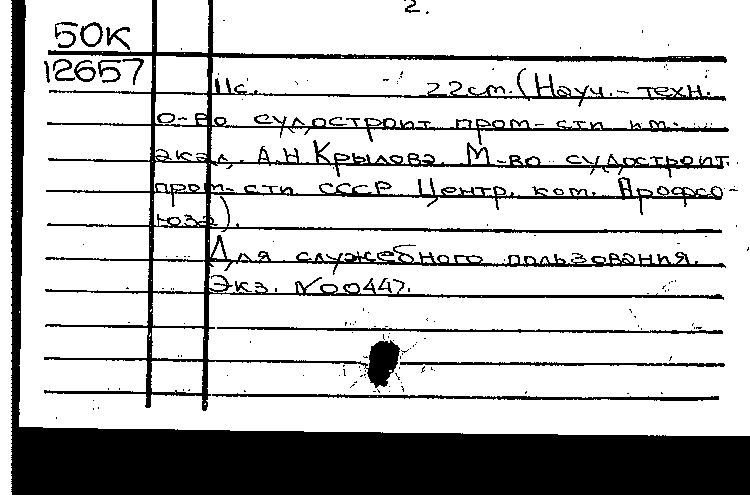 2.
50К
12657
11с. 22см. (Науч.-техн.
о-во судостроит пром-сти им.
акад. А.Н. Крылова. М-во судостроит.
пром-сти СССР Центр. ком. Профсо-
юза).
Для служебного пользования.
Экз. №00447.